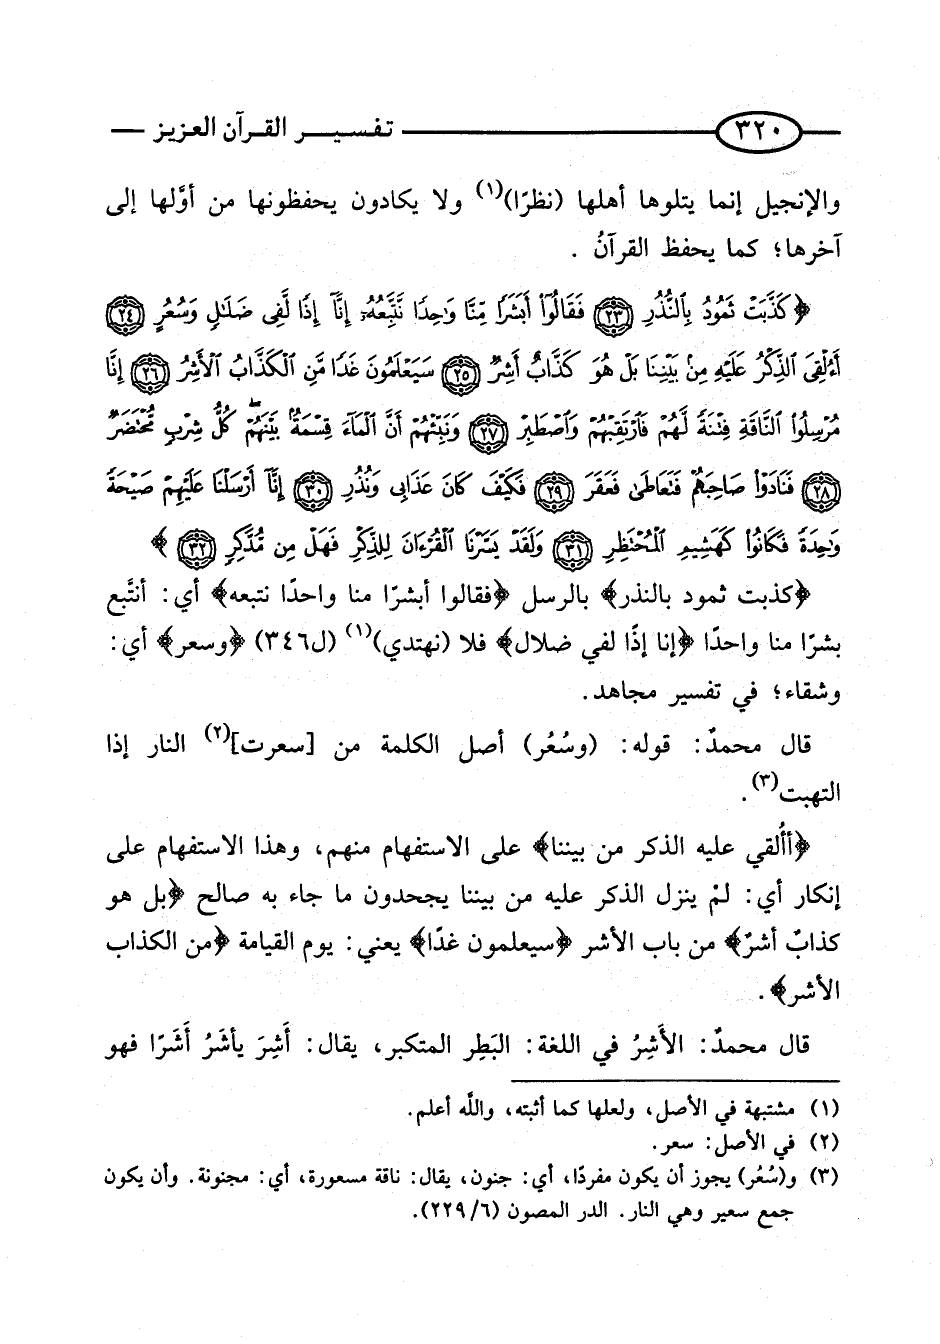 ٣٢٠ تفسير القرآن العزيز
والإنجيل إنما يتلوها أهلها (نظرًا)(١) ولا يكادون يحفظونها من أوَّلها إلى
آخرها؛ كما يحفظ القرآنُ .
﴿كَذَّبَتْ ثَمُودُ بِالنُّذُرِ ﴿٢٣﴾ فَقَالُوٓا۟ أَبَشَرًا مِّنَّا وَٰحِدًا نَّتَّبِعُهُۥٓ إِنَّآ إِذًا لَّفِى ضَلَٰلٍ وَسُعُرٍ ﴿٢٤﴾
أَءُلْقِىَ الذِّكْرُ عَلَيْهِ مِنۢ بَيْنِنَا بَلْ هُوَ كَذَّابٌ أَشِرٌ ﴿٢٥﴾ سَيَعْلَمُونَ غَدًا مَّنِ الْكَذَّابُ الْأَشِرُ ﴿٢٦﴾ إِنَّا
مُرْسِلُوا۟ النَّاقَةِ فِتْنَةً لَّهُمْ فَارْتَقِبْهُمْ وَاصْطَبِرْ ﴿٢٧﴾ وَنَبِّئْهُمْ أَنَّ الْمَآءَ قِسْمَةٌۢ بَيْنَهُمْ كُلُّ شِرْبٍ مُّحْتَضَرٌ
﴿٢٨﴾ فَنَادَوْا۟ صَاحِبَهُمْ فَتَعَاطَىٰ فَعَقَرَ ﴿٢٩﴾ فَكَيْفَ كَانَ عَذَابِى وَنُذُرِ ﴿٣٠﴾ إِنَّآ أَرْسَلْنَا عَلَيْهِمْ صَيْحَةً
وَٰحِدَةً فَكَانُوا۟ كَهَشِيمِ الْمُحْتَظِرِ ﴿٣١﴾ وَلَقَدْ يَسَّرْنَا الْقُرْءَانَ لِلذِّكْرِ فَهَلْ مِن مُّدَّكِرٍ ﴿٣٢﴾ ﴾
﴿كذبت ثمود بالنذر﴾ بالرسل ﴿فقالوا أبشرًا منا واحدًا نتبعه﴾ أي: أنتَّبع
بشرًا منا واحدًا ﴿إنا إذًا لفي ضلال﴾ فلا (نهتدي)(١) (ل٣٤٦) ﴿وسعر﴾ أي:
وشقاء؛ في تفسير مجاهد.
قال محمدٌ: قوله: (وسُعُر) أصل الكلمة من [سعرت](٢) النار إذا
التهبت(٣).
﴿أأُلقي عليه الذكر من بيننا﴾ على الاستفهام منهم، وهذا الاستفهام على
إنكار أي: لمْ ينزل الذكر عليه من بيننا يجحدون ما جاء به صالح ﴿بل هو
كذابٌ أشرٌ﴾ من باب الأشر ﴿سيعلمون غدًا﴾ يعني: يوم القيامة ﴿من الكذاب
الأشر﴾.
قال محمدٌ: الأَشِرُ في اللغة: البَطِر المتكبر، يقال: أَشِرَ يأشَرُ أَشَرًا فهو
(١) مشتبهة في الأصل، ولعلها كما أثبته، واللَّه أعلم.
(٢) في الأصل: سعر.
(٣) و(سُعُر) يجوز أن يكون مفردًا، أي: جنون، يقال: ناقة مسعورة، أي: مجنونة. وأن يكون
جمع سعير وهي النار. الدر المصون (٦/٢٢٩).